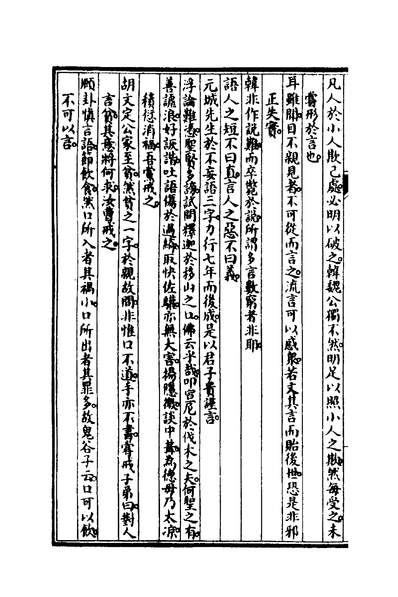 凡人於小人欺己處必明以破之韓魏公獨不然明足以照小人之欺然每受之未
嘗形於言也
耳雖聞目不親見者不可從而言之流言可以惑衆若文其言而貽後世恐是非邪
正失實
韓非作說難而卒斃於說所謂多言數窮者非耶
語人之短不曰直言人之惡不曰義
元城先生於不妄語三字力行七年而後成是以君子貴謹言
浮論雖慿聖賢多謗試問釋迦於移山之口佛云乎哉叩宫尼於伐木之夫何聖之有
善謔浪好詼諧吐語傷於過綺取快佐驩亦無大害揚隱微談中冓為德毋乃太凉
積愆消福吾當戒之
胡文定公家至貧然貧之一字於親故間非惟口不道手亦不書嘗戒子弟曰對人
言貧其意將何求汝曹戒之
頤卦慎言語節飲食然口所入者其禍小口所出者其罪多故鬼谷子云口可以飲
不可以言